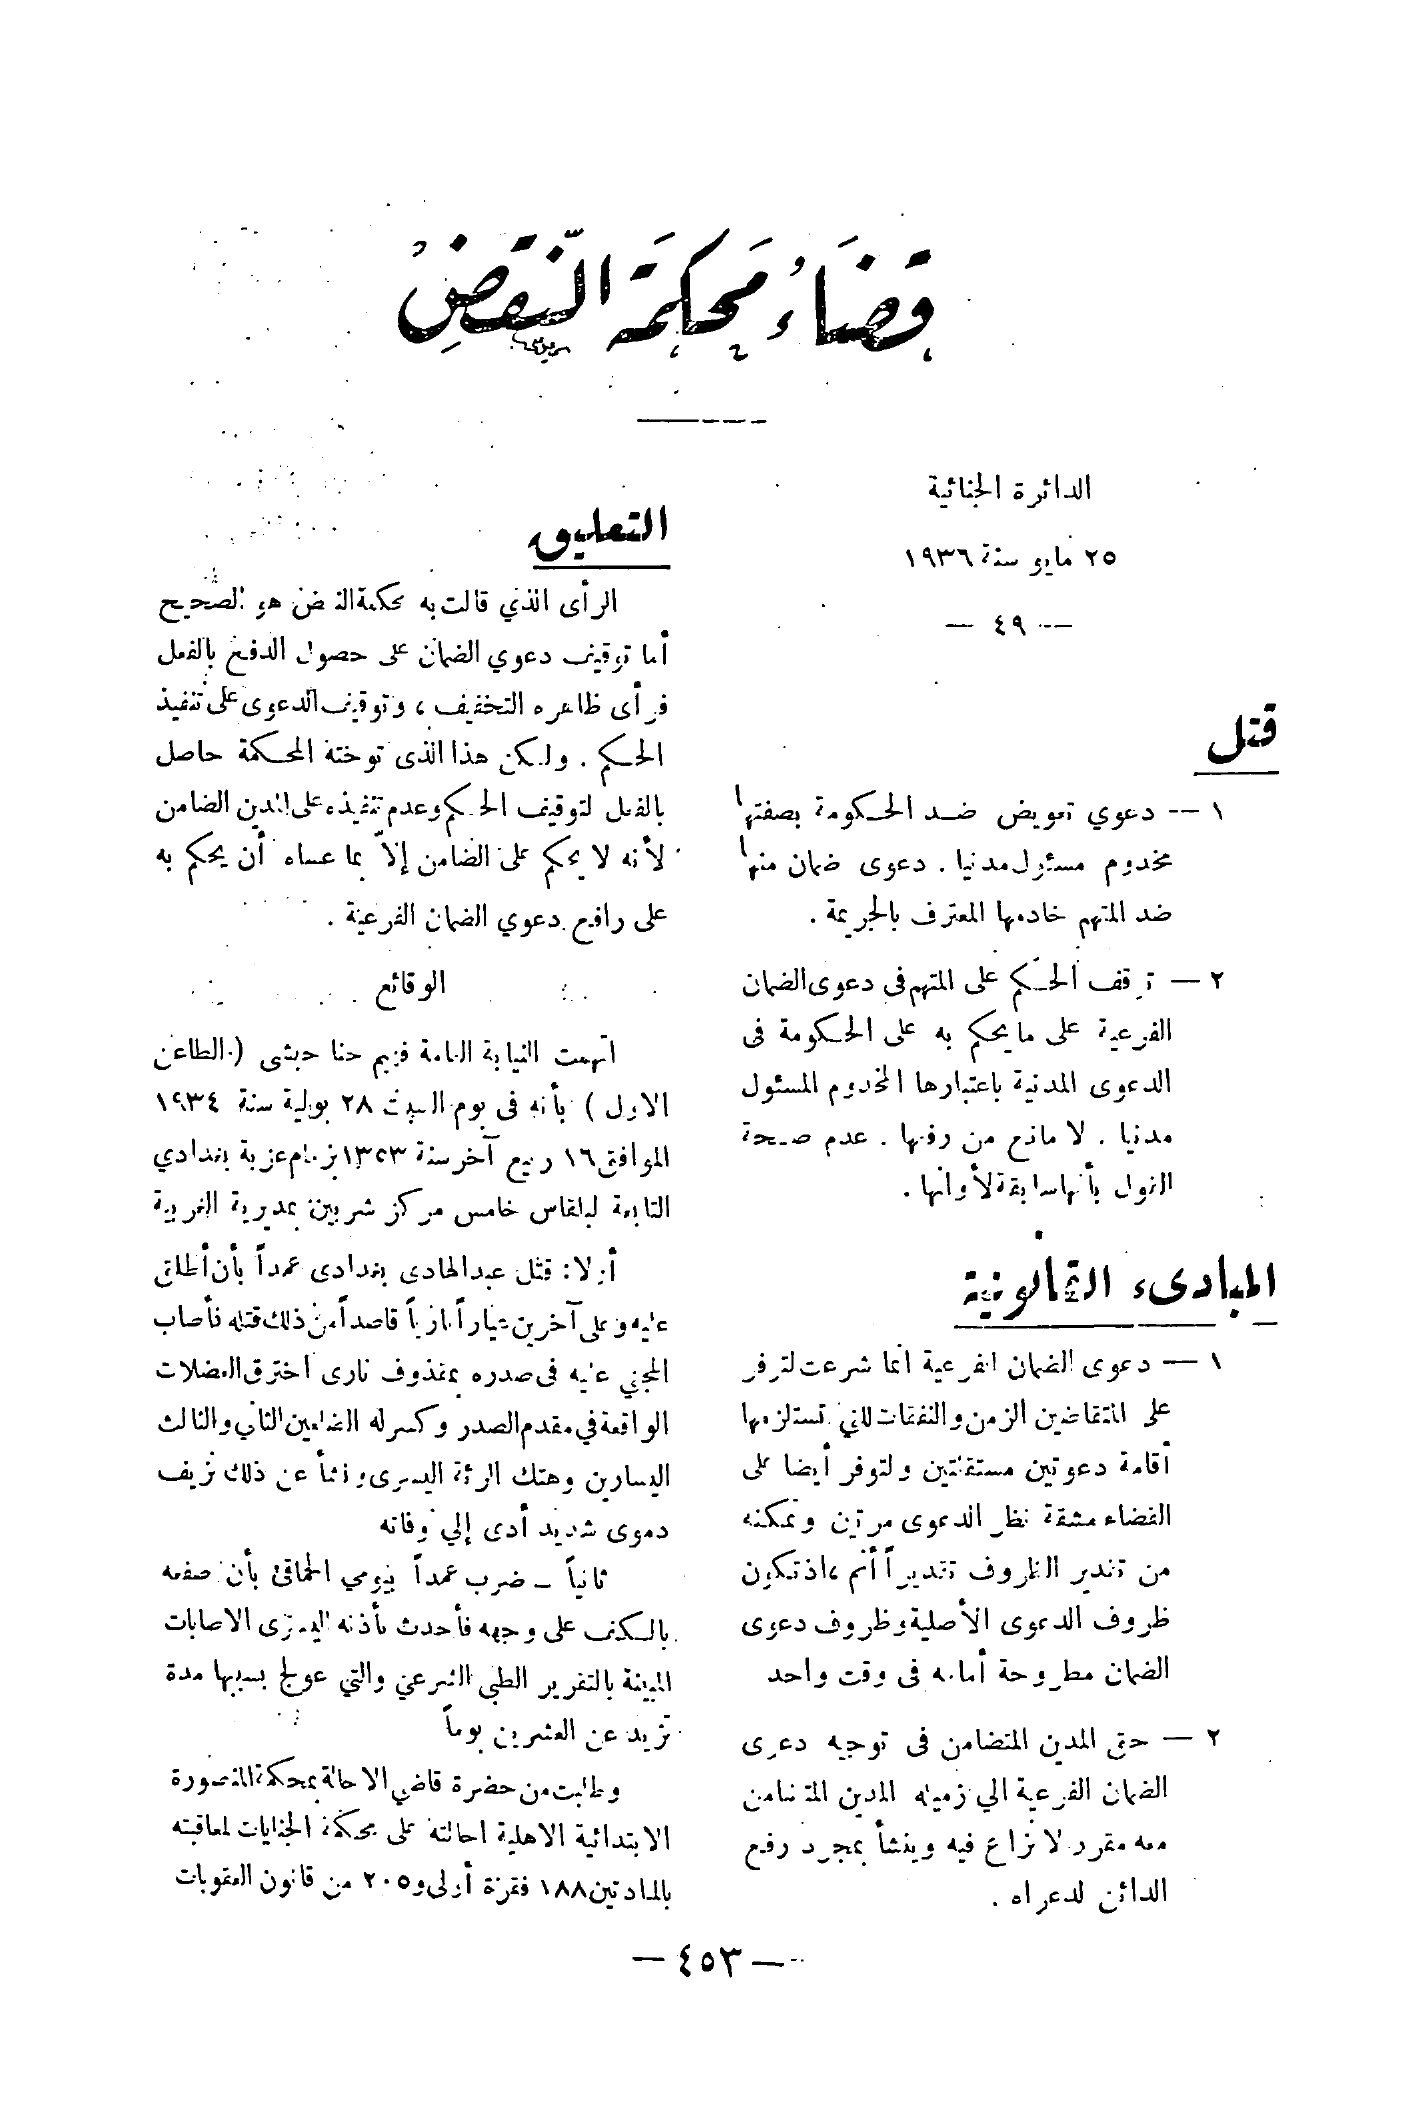 قضاء محكمة النقض
الدائرة الجنائية
٢٥ مايو سنة ١٩٣٦
— ٤٩ —
قتل
١ — دعوي تعويض ضد الحكومة بصفتها
مخدوم مسئول مدنيا . دعوى ضمان منها
ضد المتهم خادمها المعترف بالجريمة .
٢ — توقف الحكم على المتهم فى دعوى الضمان
الفرعية على ما يحكم به على الحكومة فى
الدعوى المدنية باعتبارها المخدوم المسئول
مدنيا . لا مانع من رفعها . عدم صحة
القول بأنها سابقة لأوانها .
المبادىء القانونية
١ — دعوى الضمان الفرعية انما شرعت لتوفر
على المتقاضين الزمن والنفقات التي تستلزمها
أقامة دعوتين مستقلتين ولتوفر أيضا على
القضاء مشقة نظر الدعوى مرتين وتمكنه
من تقدير الظروف تقديراً أتم ، اذ تكون
ظروف الدعوى الأصلية وظروف دعوى
الضمان مطروحة أمامه فى وقت واحد
٢ — حق المدين المتضامن فى توجيه دعوى
الضمان الفرعية الي زميله المدين المتضامن
معه مقرر لا نزاع فيه وينشأ بمجرد رفع
الدائن لدعواه .
التعليق
الرأى الذي قالت به محكمة النقض هو الصحيح
أما توقيف دعوي الضمان على حصول الدفع بالفعل
فرأى ظاهره التخفيف ، وتوقيف الدعوى على تنفيذ
الحكم . ولكن هذا الذى توخته المحكمة حاصل
بالفعل لتوقيف الحكم وعدم تنفيذه على المدين الضامن
لأنه لا يحكم على الضامن إلاّ بما عساه أن يحكم به
على رافع دعوي الضمان الفرعية .
الوقائع
اتهمت النيابة العامة فهيم حنا حبشى (الطاعن
الاول ) بأنه فى يوم السبت ٢٨ يولية سنة ١٩٣٤
الموافق ١٦ ربيع آخر سنة ١٣٥٣ بزمام عزبة بغدادي
التابعة لبلقاس خامس مركز شربين بمديرية الغربية
أولا : قتل عبد الهادى بغدادى عمداً بأن أطلق
عليه وعلى آخرين عياراً نارياً قاصداً من ذلك قتله فأصاب
المجني عليه فى صدره بمقذوف نارى اخترق العضلات
الواقعة في مقدم الصدر وكسر له الضلعين الثانى والثالث
اليسارين وهتك الرئة اليسرى ونشأ عن ذلك نزيف
دموى شديد أدى إلي وفاته
ثانياً ـ ضرب عمداً بيومي الحماقى بأن صفعه
بالكف على وجهه فأحدث بأذنه اليسرى الاصابات
المبينة بالتقرير الطبى الشرعي والتي عولج بسببها مدة
تزيد عن العشرين يوماً
وطلبت من حضرة قاضي الاحالة بمحكمة المنصورة
الابتدائية الاهلية احالته على محكمة الجنايات لمعاقبته
بالمادتين ١٨٨ فقرة أولى و ٢٠٥ من قانون العقوبات
— ٤٥٣ —